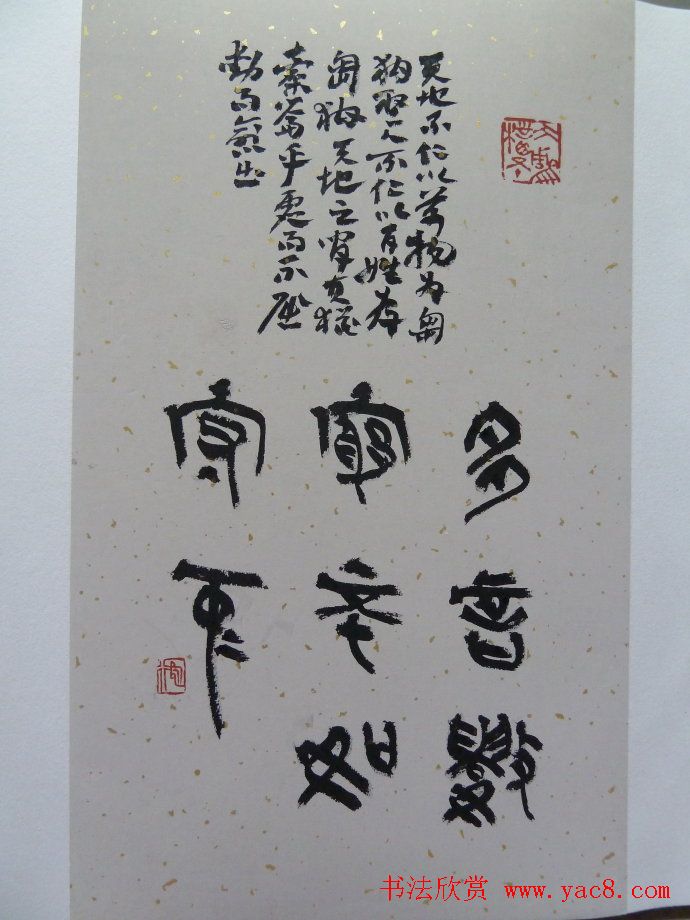 天地不仁以萬物為芻
狗聖人不仁以百姓為
芻狗天地之間其猶
橐籥乎虛而不屈
動而愈出
多言數
窮不如
守中
书法欣赏 www.yac8.com